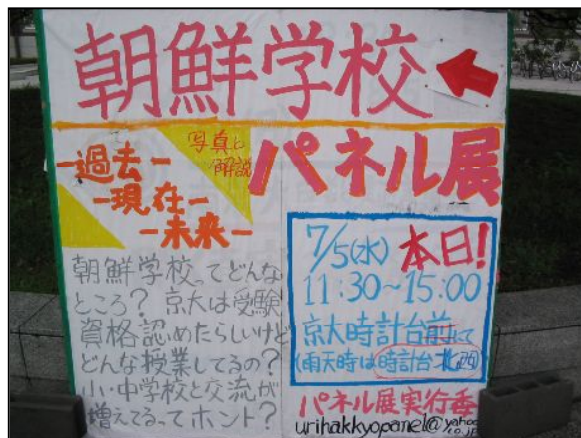 朝鮮学校
写真と
解説
パネル展
-過去-
-現在-
-未来-
朝鮮学校ってどんな
ところ? 京大は受験
資格認めたらしいけど
どんな授業してるの?
小・中学校と交流が
増えてるってホント?
7/5(水) 本日!
11:30~15:00
京大時計台前にて
(雨天時は時計台北西)
パネル展実行委
urihakkyopanel@yahoo
.co.jp